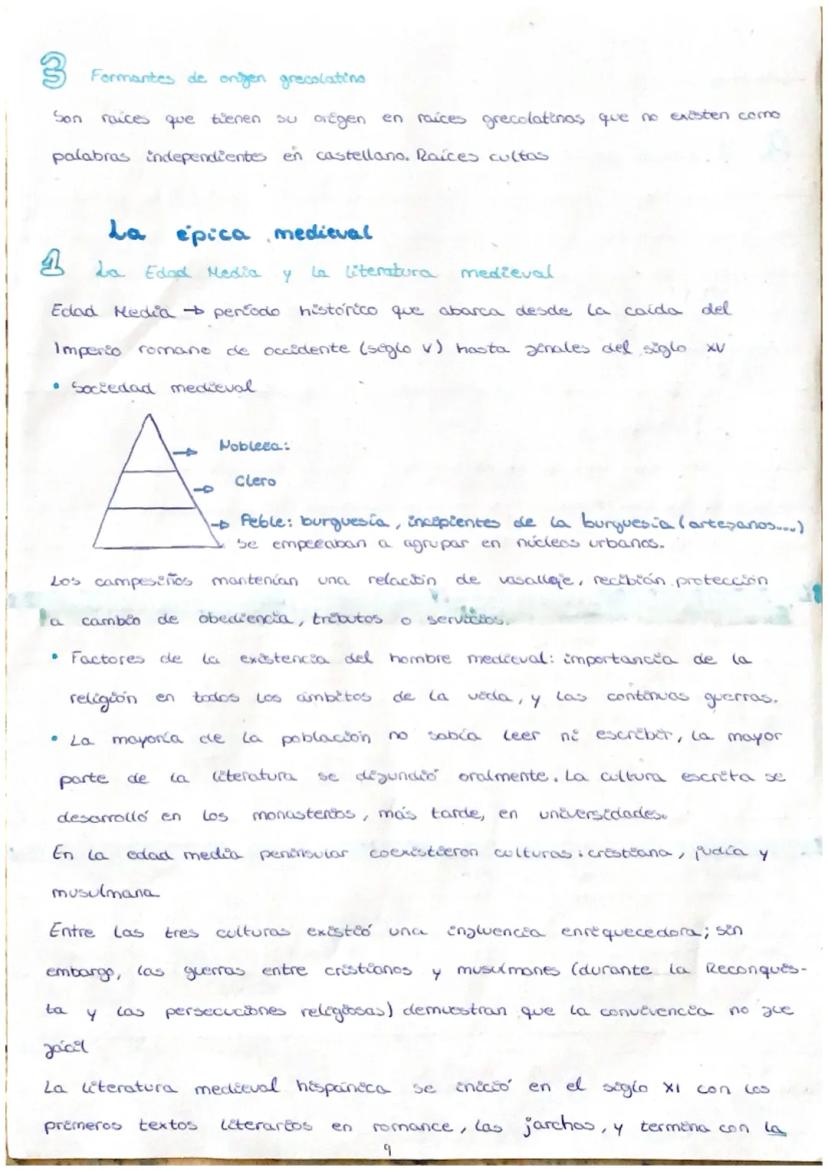 3 Formantes de origen grecolatino
Son raíces que tienen su origen en raíces grecolatinas, que no existen como
palabras independientes en castellano. Raíces cultas
La épica medieval
1 La Edad Media y la literatura medieval
Edad Media → período histórico que abarca desde la caída del
Imperio romano de occidente (siglo V) hasta finales del siglo XV
• Sociedad medieval
→ Nobleza:
→ Clero
→ Peble: burguesía, incipientes de la burguesía (artesanos....)
se empezaban a agrupar en núcleos urbanos.
Los campesinos mantenían una relación de vasallaje, recibían protección
a cambio de obediencia, tributos o servicios.
• Factores de la existencia del hombre medieval: importancia de la
religión en todos los ámbitos de la vida, y las continuas guerras.
• La mayoría de la población no sabía leer ni escribir, la mayor
parte de la literatura se difundió oralmente. La cultura escrita se
desarrolló en los monasterios, más tarde, en universidades.
En la edad media peninsular coexistieron culturas: cristiana, judía y
musulmana
Entre las tres culturas existió una influencia enriquecedora; sin
embargo, las guerras entre cristianos y musulmanes (durante la Reconquis-
ta y las persecuciones religiosas) demuestran que la convivencia no fue
fácil
La literatura medieval hispánica se inició en el siglo XI con los
primeros textos literarios en romance, las jarchas, y termina con la
9